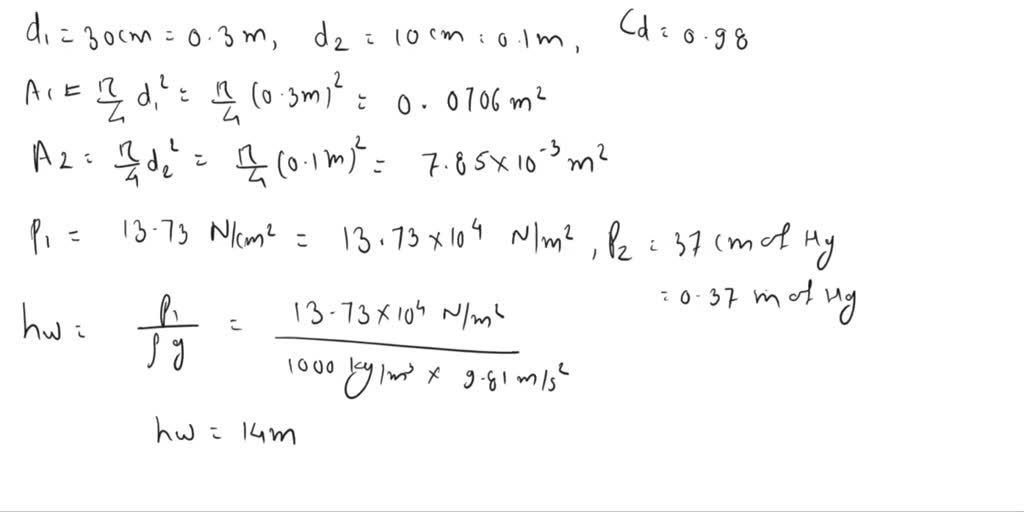 d₁ = 30cm = 0.3m, d₂ = 10cm = 0.1m, Cd = 0.98
A₁ = π/4 d₁² = π/4 (0.3m)² = 0.0706 m²
A2 = π/4 d₂² = π/4 (0.1m)² = 7.85×10⁻³ m²
P₁ = 13.73 N/cm² = 13.73×10⁴ N/m², P₂ = 37 cm of Hg
= 0.37 m of Hg
hw = P₁/ρg = 13.73×10⁴ N/m² / 1000 kg/m³ × 9.81 m/s²
hw = 14m